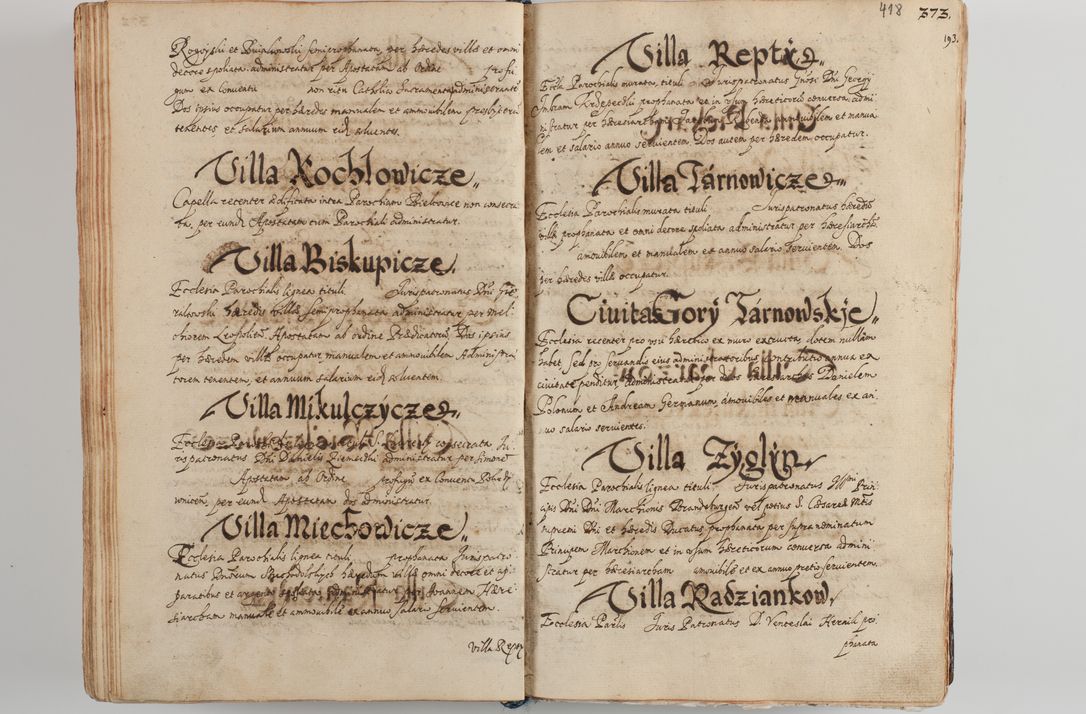 Rogoyski et Bujakowski semiprophanata, per hæredes villæ et omni
decore spoliata administratur per Apostatam ab Ordine profu
gum ex Conventu non ritu Catholico Sacramenta administrante
Dos ipsius occupatur per hæredes manualem et ammouibilem presbyterũ
tenentes et salarium annuum eidẽ soluentes.
Villa Kochlowicze
Capella recenter ædificata intra Parochiam Bielowice non consecra
ta, per eundẽ Apostatam cum Parochiali administratur.
Villa Biskupicze
Ecclesia Parochialis lignea tituli Jurispatronatus Dñi
hæredis villæ semiprophanata administratur per Mel
chiorem Leopolitẽ Apostatam ab ordine Prædicatorũ Dos ipsius
per hæredem villæ occupatur manualem et ammouibilem Administra
torem tenentem, et annuum salarium eidẽ soluentem.
Villa Mikulczycze
Ecclesia Parochialis tituli S. consecrata Ju
ris patronatus Dñi Danielis administratur per Simonẽ
Apostatam ab Ordine profugũ ex Conventu
per eundẽ Apostatam dos administratur.
Villa Miechowicze
Ecclesia Parochialis lignea tituli prophanata Jurispatro
natus hæredum villæ omni decore et ap
paratibus et argento spoliata administratur per Joannem Hære
siarcham manualẽ et ammouibilẽ ex annuo salario seruientem.
Villa Repty
418 373.
193.
Villa Repty
Eccla Parochialis murata tituli Jurispatronatus Gnosi Dñi Georgy
prophanata et in usum hæreticorũ conversa admi
nistratur per hæresiarcham ammouibilem et manua
lem et salario annuo seruientem Dos autem per hæredem occupatur.
Villa Tarnowicze
Ecclesia Parochialis murata tituli Jurispatronatus hæredis
villæ prophanata et omni decore spoliata administratur per hæresiarchã
amouibilem et manualem ex annuo salario seruientem Dos
per hæredes villæ occupatur.
Ciuitas Gory Tarnowskje
Ecclesia recenter pro usu hæretico ex muro extructa dotem nullam
habet sed pro seruandis eius administratoribus contributio annua ex
ciuitate penditur, administratur per duos hæresiarchas Danielem
Polonum et Andream Germanum, amouibiles et manuales ex an
nuo salario seruientes.
Villa Zyglyn
Ecclesia Parochialis lignea tituli Jurispatronatus Prin
cipis Dñi Dñi Marchionis Brandeburgeñ vel potius S. Cæsareæ Mtis
supremi Dñi et hæredis Ducatus prophanata per supra nominatum
Principem Marchionem et in usum hæreticorum conuersa admini
stratur per hæresiarcham amouibilẽ et ex annuo pretio seruientem.
Villa Radziankow
Ecclesia Parlis Juris Patronatus D. Venceslai pro
phanata